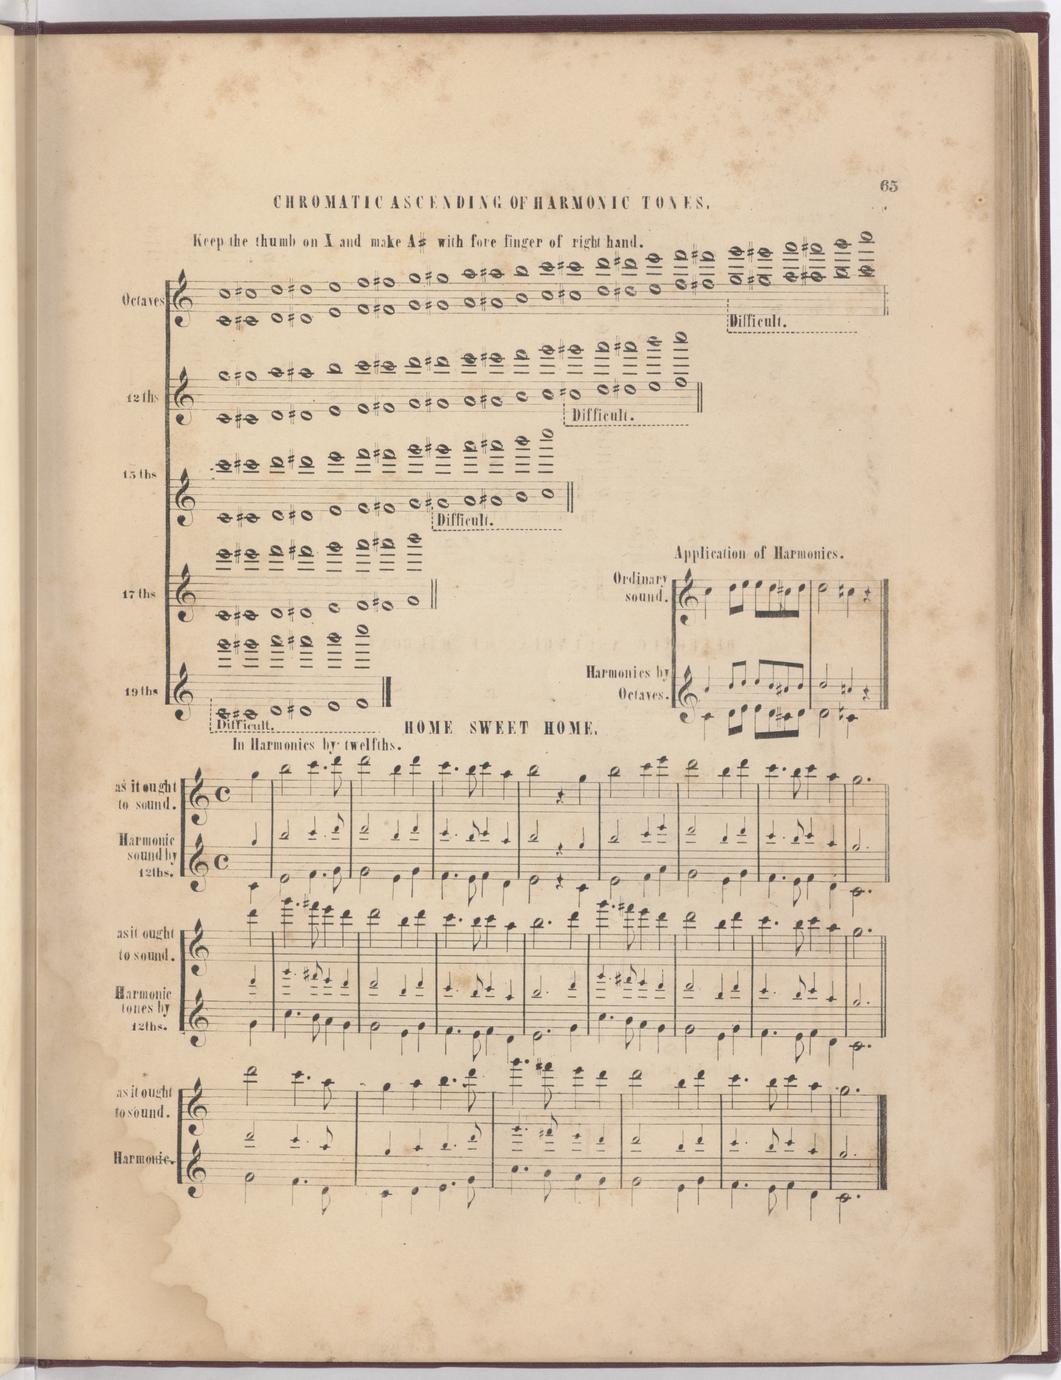 65
CHROMATIC ASCENDING OF HARMONIC TONES.
Keep the thumb on X and make A♯ with fore finger of right hand.
Octaves
Difficult.
12 ths
Difficult.
15 ths
Difficult.
17 ths
19 ths
Difficult.
Application of Harmonics.
Ordinary
sound.
Harmonics by
Octaves.
HOME SWEET HOME.
In Harmonics by twelfths.
as it ought
to sound.
Harmonic
sound by
12ths.
as it ought
to sound.
Harmonic
tones by
12ths.
as it ought
to sound.
Harmonic.